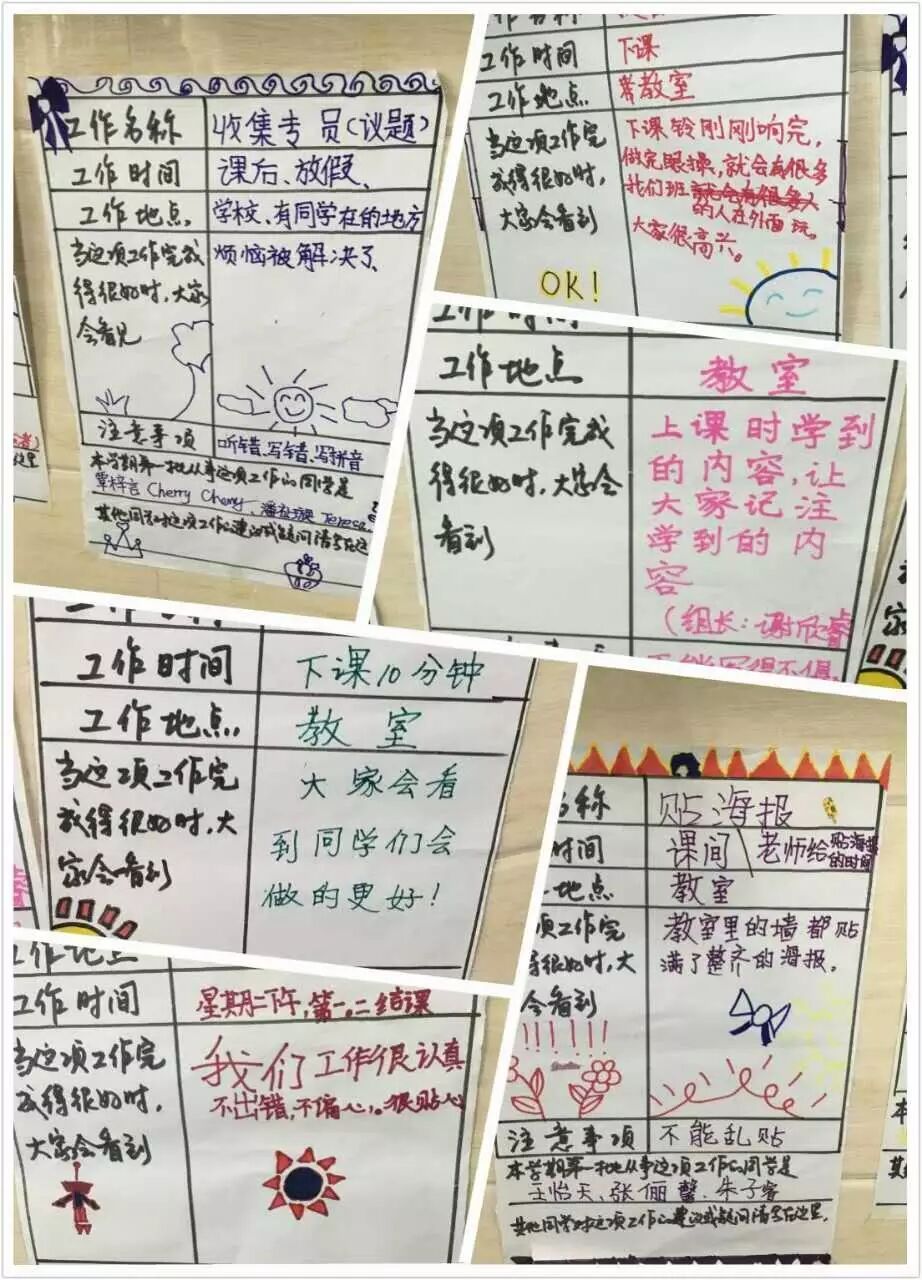 工作名称 收集专员(议题)
工作时间 课后、放假、
工作地点 学校、有同学在的地方
当这项工作完成 烦恼被解决了
得很好时,大家
会看见
注意事项 听错、写错、写拼音
本学期第一批从事这项工作的同学是
覃梓言 Cherry Cheny、
其他同学对这项工作的建议或疑问请写在这
工作时间 下课
工作地点 教室
当这项工作完 下课铃刚刚响完,
成得很好时, 做完眼操,就会有很多
大家会看到 我们班
的人在外面玩。
大家很高兴。
OK!
工作时间
工作地点 教室
当这项工作完成 上课时学到
得很好时,大家会 的内容,让
看到 大家记注
学到的内
容
(组长:谢欣睿
工作时间 下课10分钟
工作地点 教室
当这项工作完 大家会看
成得很好时,大 到同学们会
家会看到 做的更好!
名称 贴海报
时间 课间 老师给贴海报
的时间
地点 教室
项工作完 教室里的墙都贴
得很好时,大 满了整齐的海报。
会看到
注意事项 不能乱贴
本学期第一批从事这项工作的同学是
王怡天、张俪馨、朱子睿
其他同学对这项工作的建议或疑问请写在这里,
工作地点
工作时间 星期二下午,第一、二结课
当这项工作完 我们工作很认真
成得很好时, 不出错,不偏心。很贴心
大家会看到